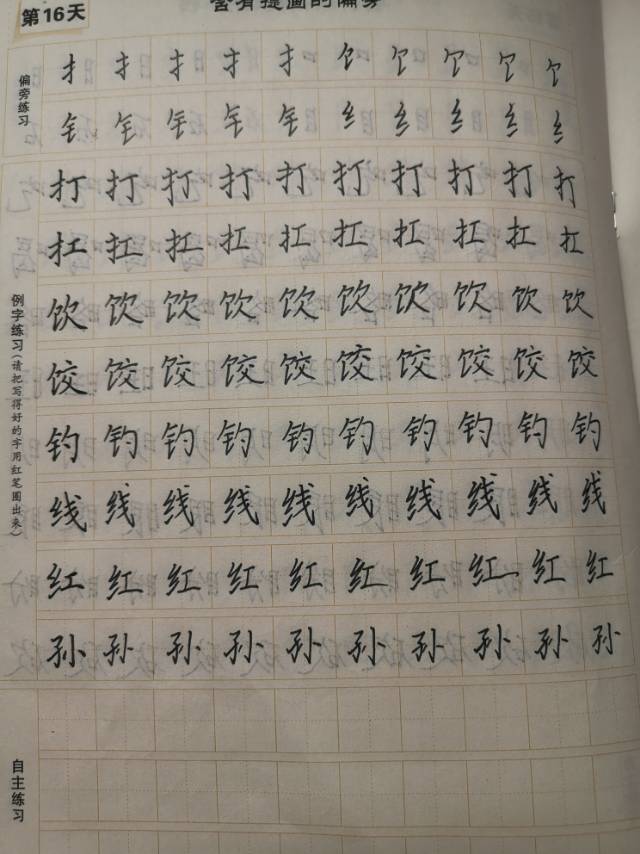 第16天
含有提画的偏旁
偏旁练习
扌扌扌扌扌饣饣饣饣饣
钅钅钅钅钅纟纟纟纟纟
例字练习(请把写得好的字用红笔圈出来)
打打打打打打打打打打
扛扛扛扛扛扛扛扛扛扛
饮饮饮饮饮饮饮饮饮饮
饺饺饺饺饺饺饺饺饺饺
钓钓钓钓钓钓钓钓钓钓
线线线线线线线线线线
红红红红红红红红红红
孙孙孙孙孙孙孙孙孙孙
自主练习